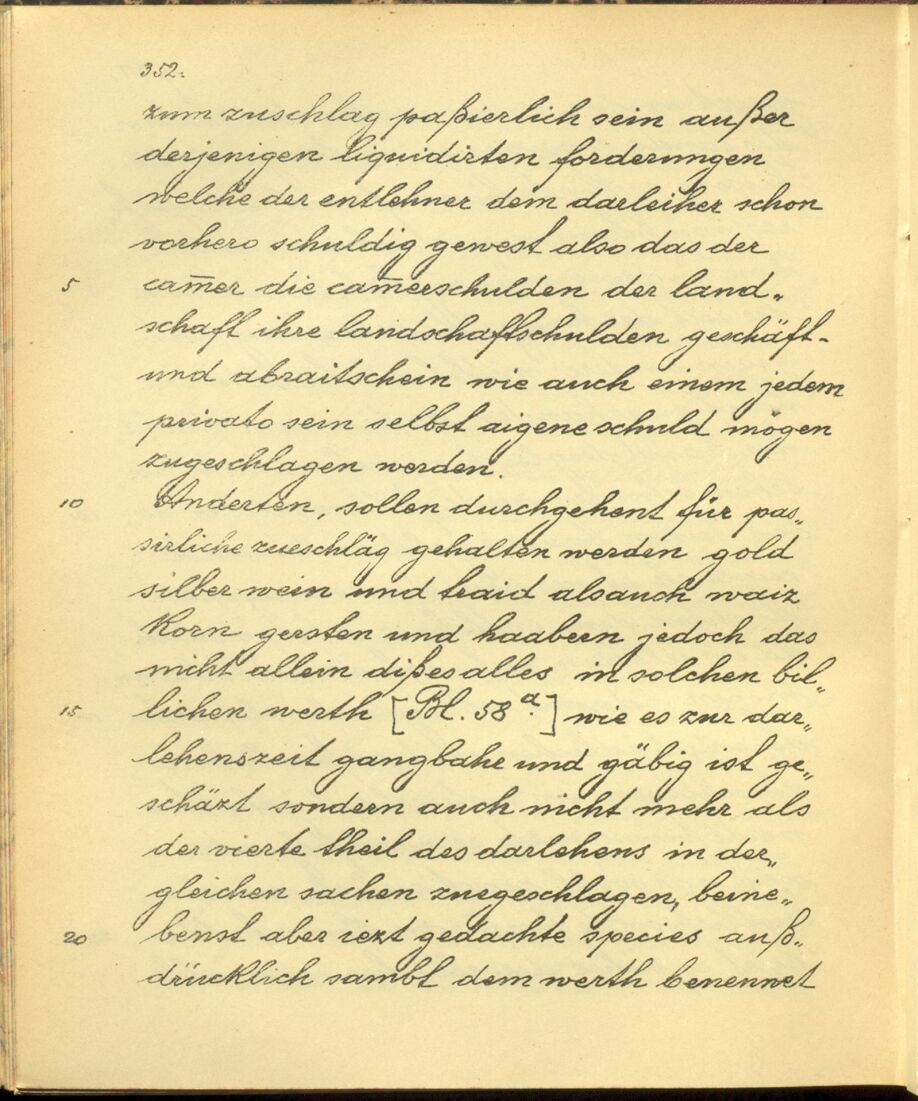 352.
zum zuschlag paßierlich sein außer
derjenigen liquidirten forderungen
welche der entlehner dem darleiher schon
vorhero schuldig gewest also das der
5 cam̅er die cam̅erschulden der land„
schaft ihre landschaftschulden geschäft-
und abraitschein wie auch einem jedem
privato sein selbst aigene schuld mögen
zugeschlagen werden.
10 Anderten, sollen durchgehent für pas„
sirliche zueschläg gehalten werden gold
silber wein und traid alsauch waiz
Korn gersten und haabern jedoch das
nicht allein dißes alles in solchen bil„
15 lichen werth [Bl. 58 a.] wie es zur dar„
lehenszeit gangbahr und gäbig ist ge„
schäzt sondern auch nicht mehr als
der vierte theil des darlehens in der„
gleichen sachen zuegeschlagen, beine„
20 benst aber iezt gedachte species auß„
drücklich sambt dem werth benennet